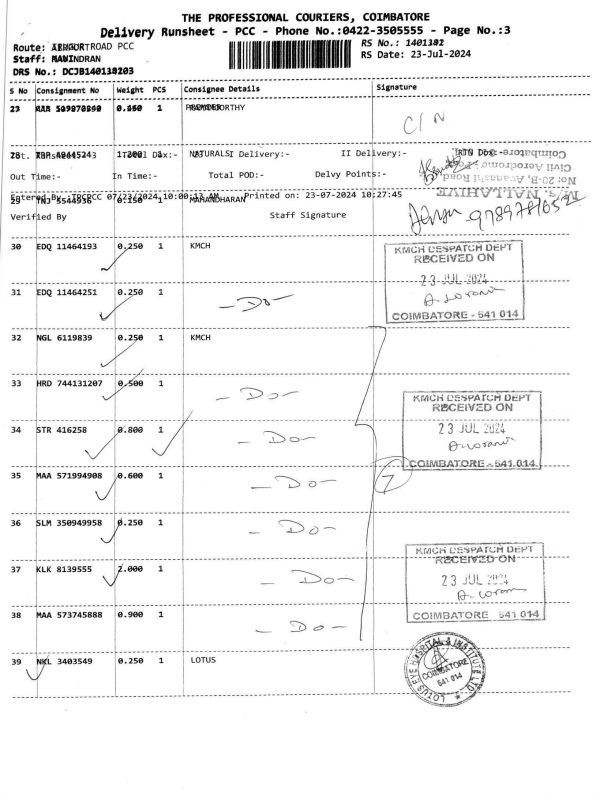 THE PROFESSIONAL COURIERS, COIMBATORE
Delivery Runsheet - PCC - Phone No.:0422-3505555 - Page No.:3
Route: ROAD PCC
Staff:
DRS No.:
RS No.:
RS Date: 23-Jul-2024
S No Consignment No Weight PCS Consignee Details Signature
C/N
NATURALS
I Delivery:- II Delivery:-
Out Time:- In Time:- Total POD:- Delvy Points:-
Printed on: 23-07-2024 10:27:45
MARANDHARAN
Verified By Staff Signature
30 EDQ 11464193 0.250 1 KMCH
KMCH DESPATCH DEPT
RECEIVED ON
23 JUL 2024
COIMBATORE - 641 014
31 EDQ 11464251 0.250 1 -Do-
32 NGL 6119839 0.250 1 KMCH
33 HRD 744131207 0.500 1 -Do-
KMCH DESPATCH DEPT
RECEIVED ON
23 JUL 2024
COIMBATORE - 641 014
34 STR 416258 0.800 1 -Do-
35 MAA 571994908 0.600 1 -Do-
7
36 SLM 350949958 0.250 1 -Do-
37 KLK 8139555 2.000 1 -Do-
KMCH DESPATCH DEPT
RECEIVED ON
23 JUL 2024
COIMBATORE 641 014
38 MAA 573745888 0.900 1 -Do-
39 NKL 3403549 0.250 1 LOTUS
LOTUS EYE HOSPITAL & INSTITUTE LTD.
COIMBATORE
641 014